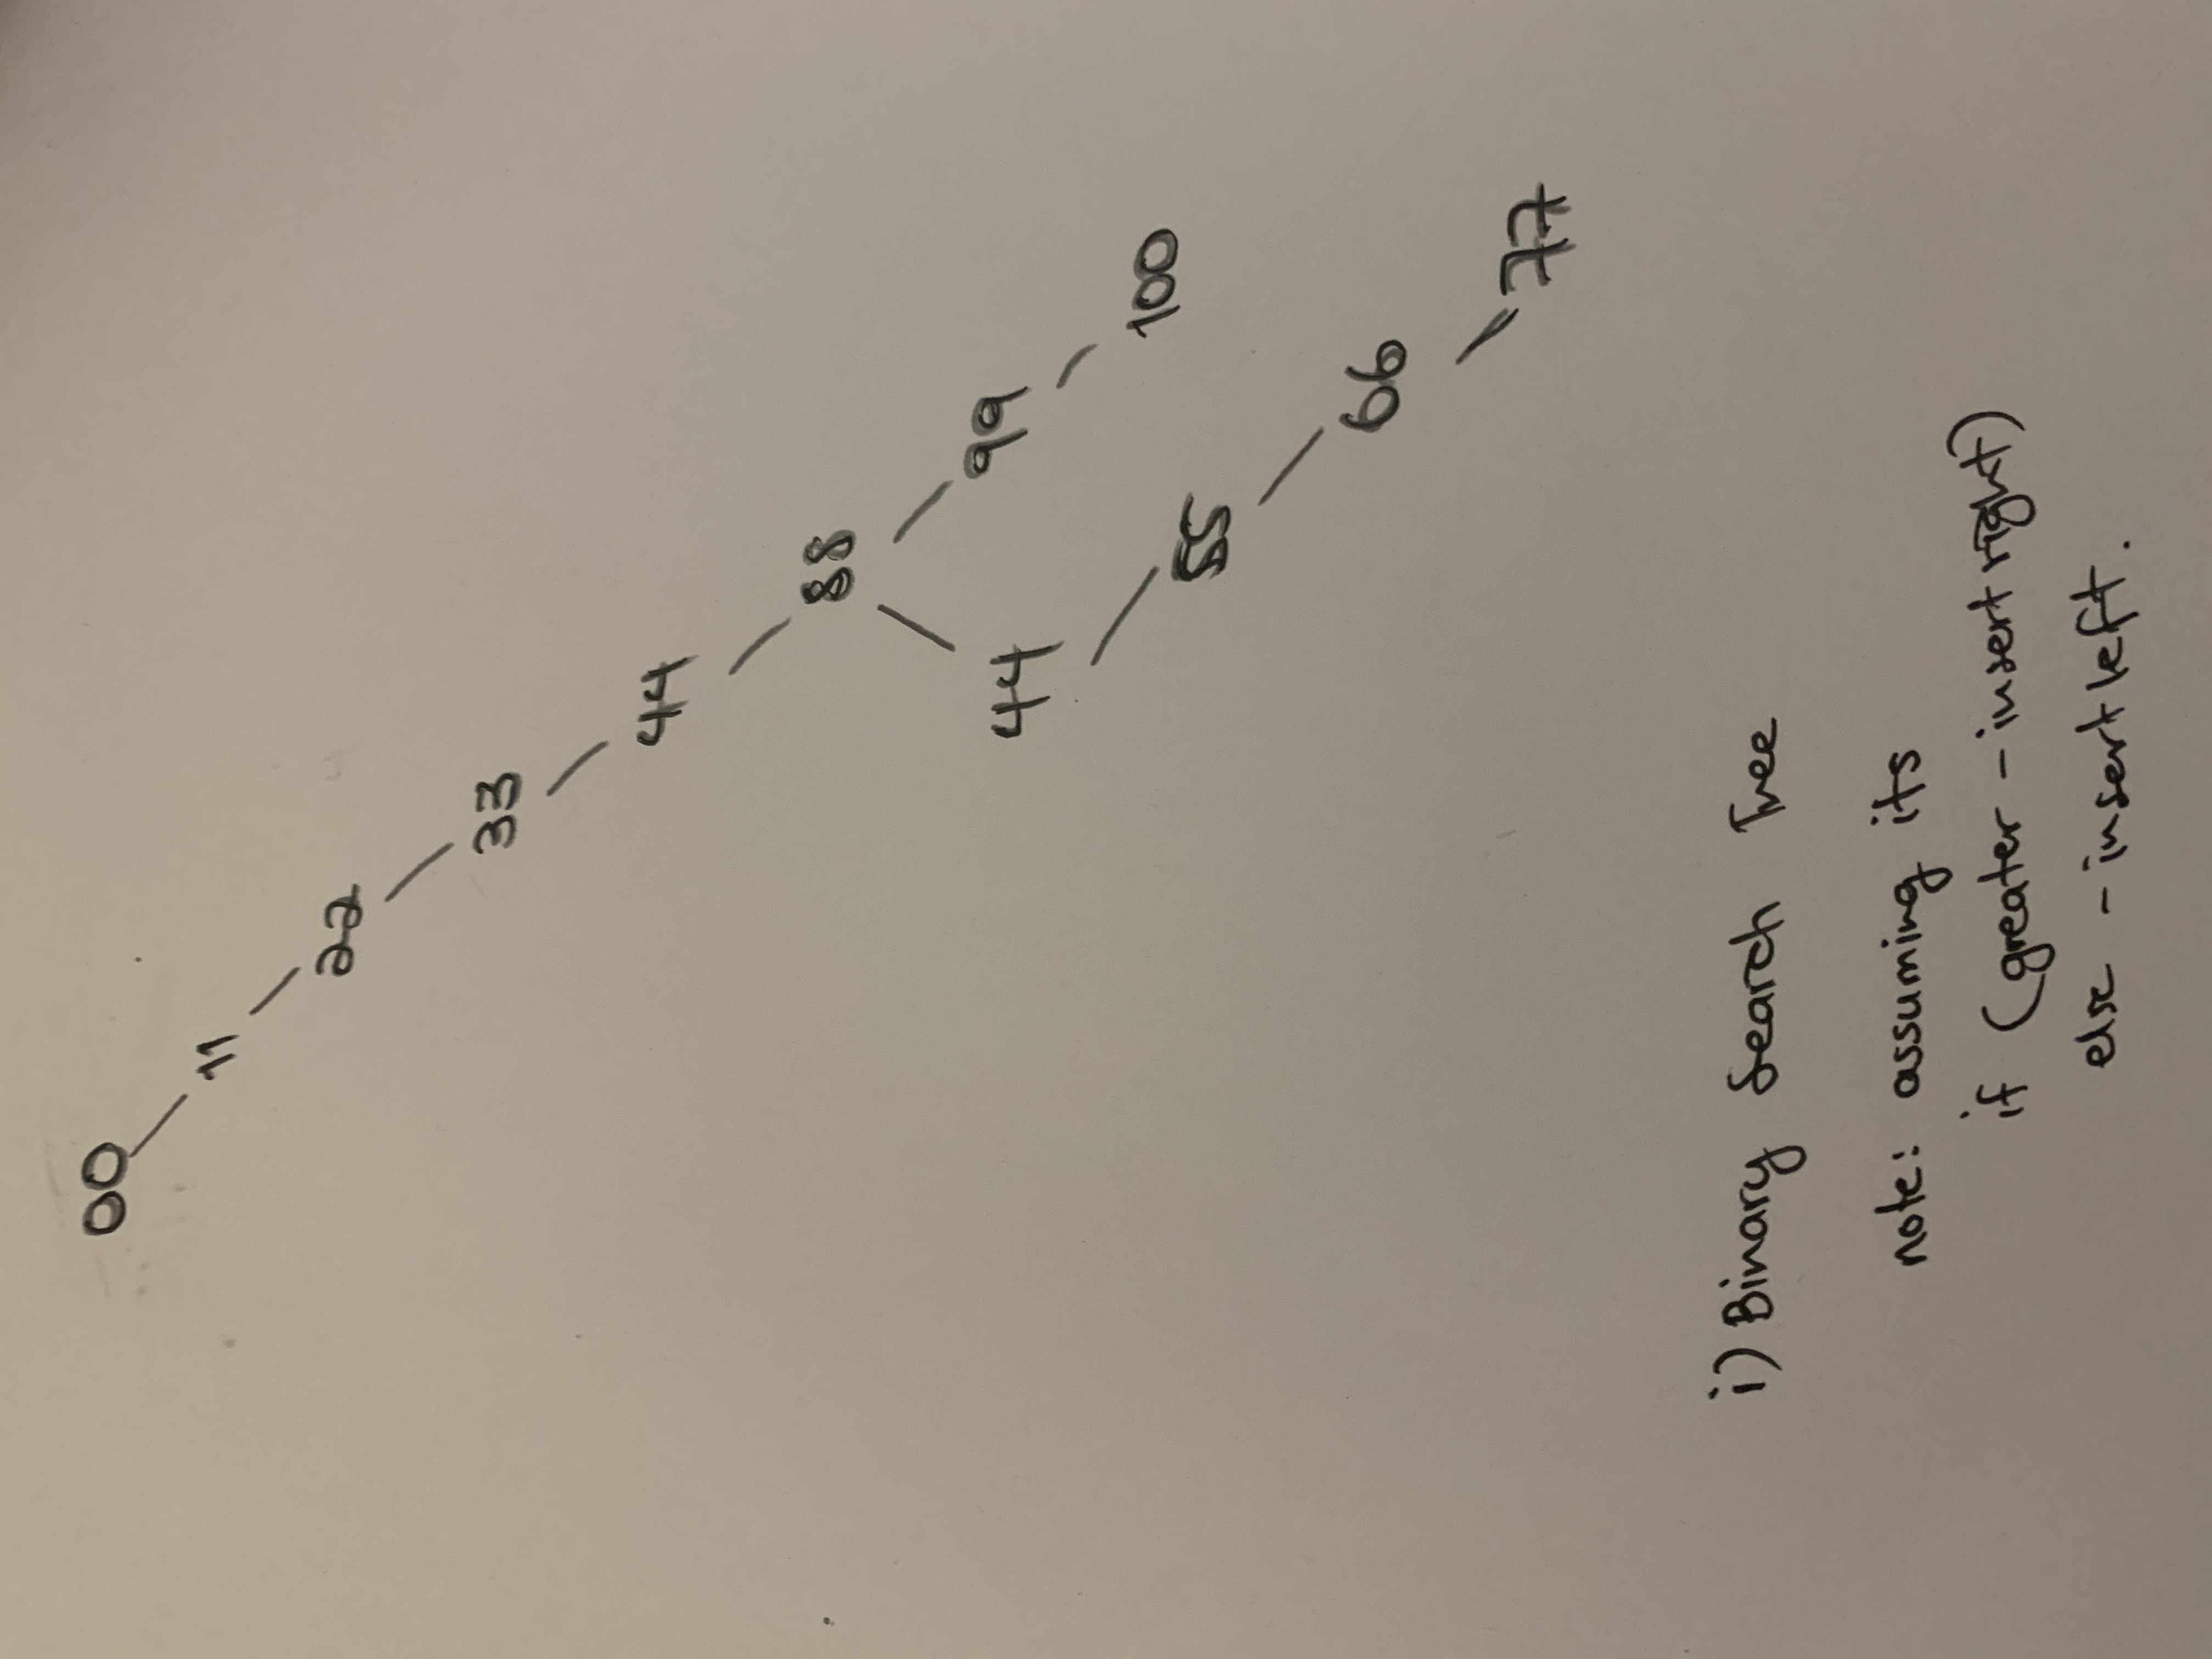 00
11
22
33
44
88
44 99
100
55
66
77
i) Binary Search Tree
note: assuming its
if (greater - insert right)
else - insert left.